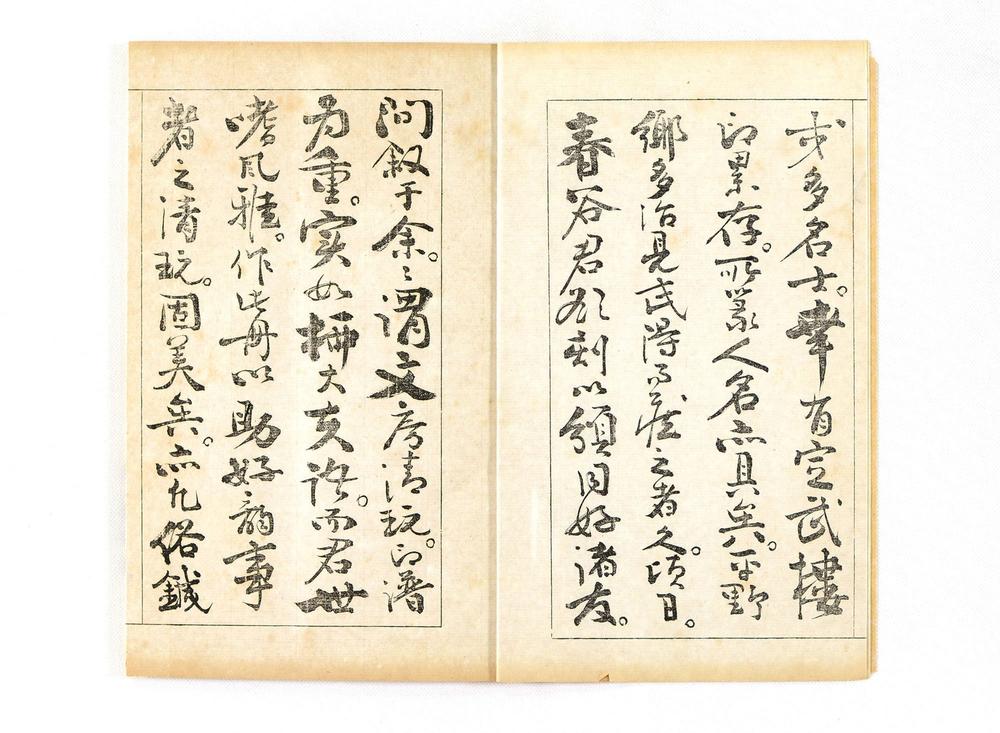 或多名士。幸有定武楼
印累存。所篆人名亦具矣。平野
鄉多治見武得而藏之者久。頃日。
春谷君欲刻以頒同好諸友。
問叙于余。〻謂文房清玩。印譜
為重。実如擁大夫語。而君世
嗜風雅。作此冊以助好韵事
者之清玩。固美矣。亦九俗鍼